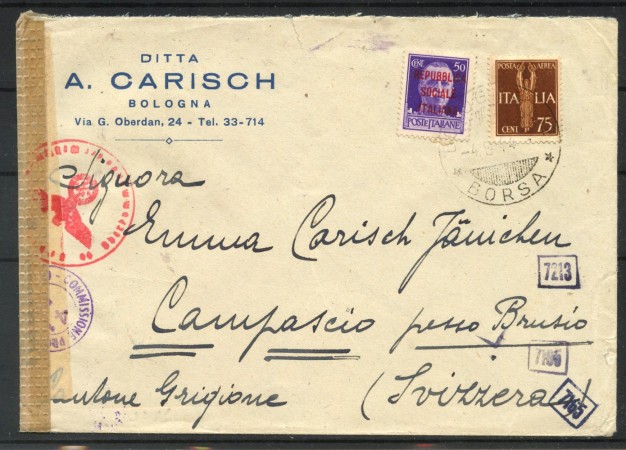 DITTA
A. CARISCH
BOLOGNA
Via G. Oberdan, 24 - Tel. 33-714
CENT. 50
REPUBBLICA
SOCIALE
ITALIANA
POSTE ITALIANE
POSTA AEREA
ITALIA
CENT 75
BORSA
Signora
Emma Carisch Jänichen
7213
Campascio presso Brusio
7165
Cantone Grigione (Svizzera)
COMMISSIONE